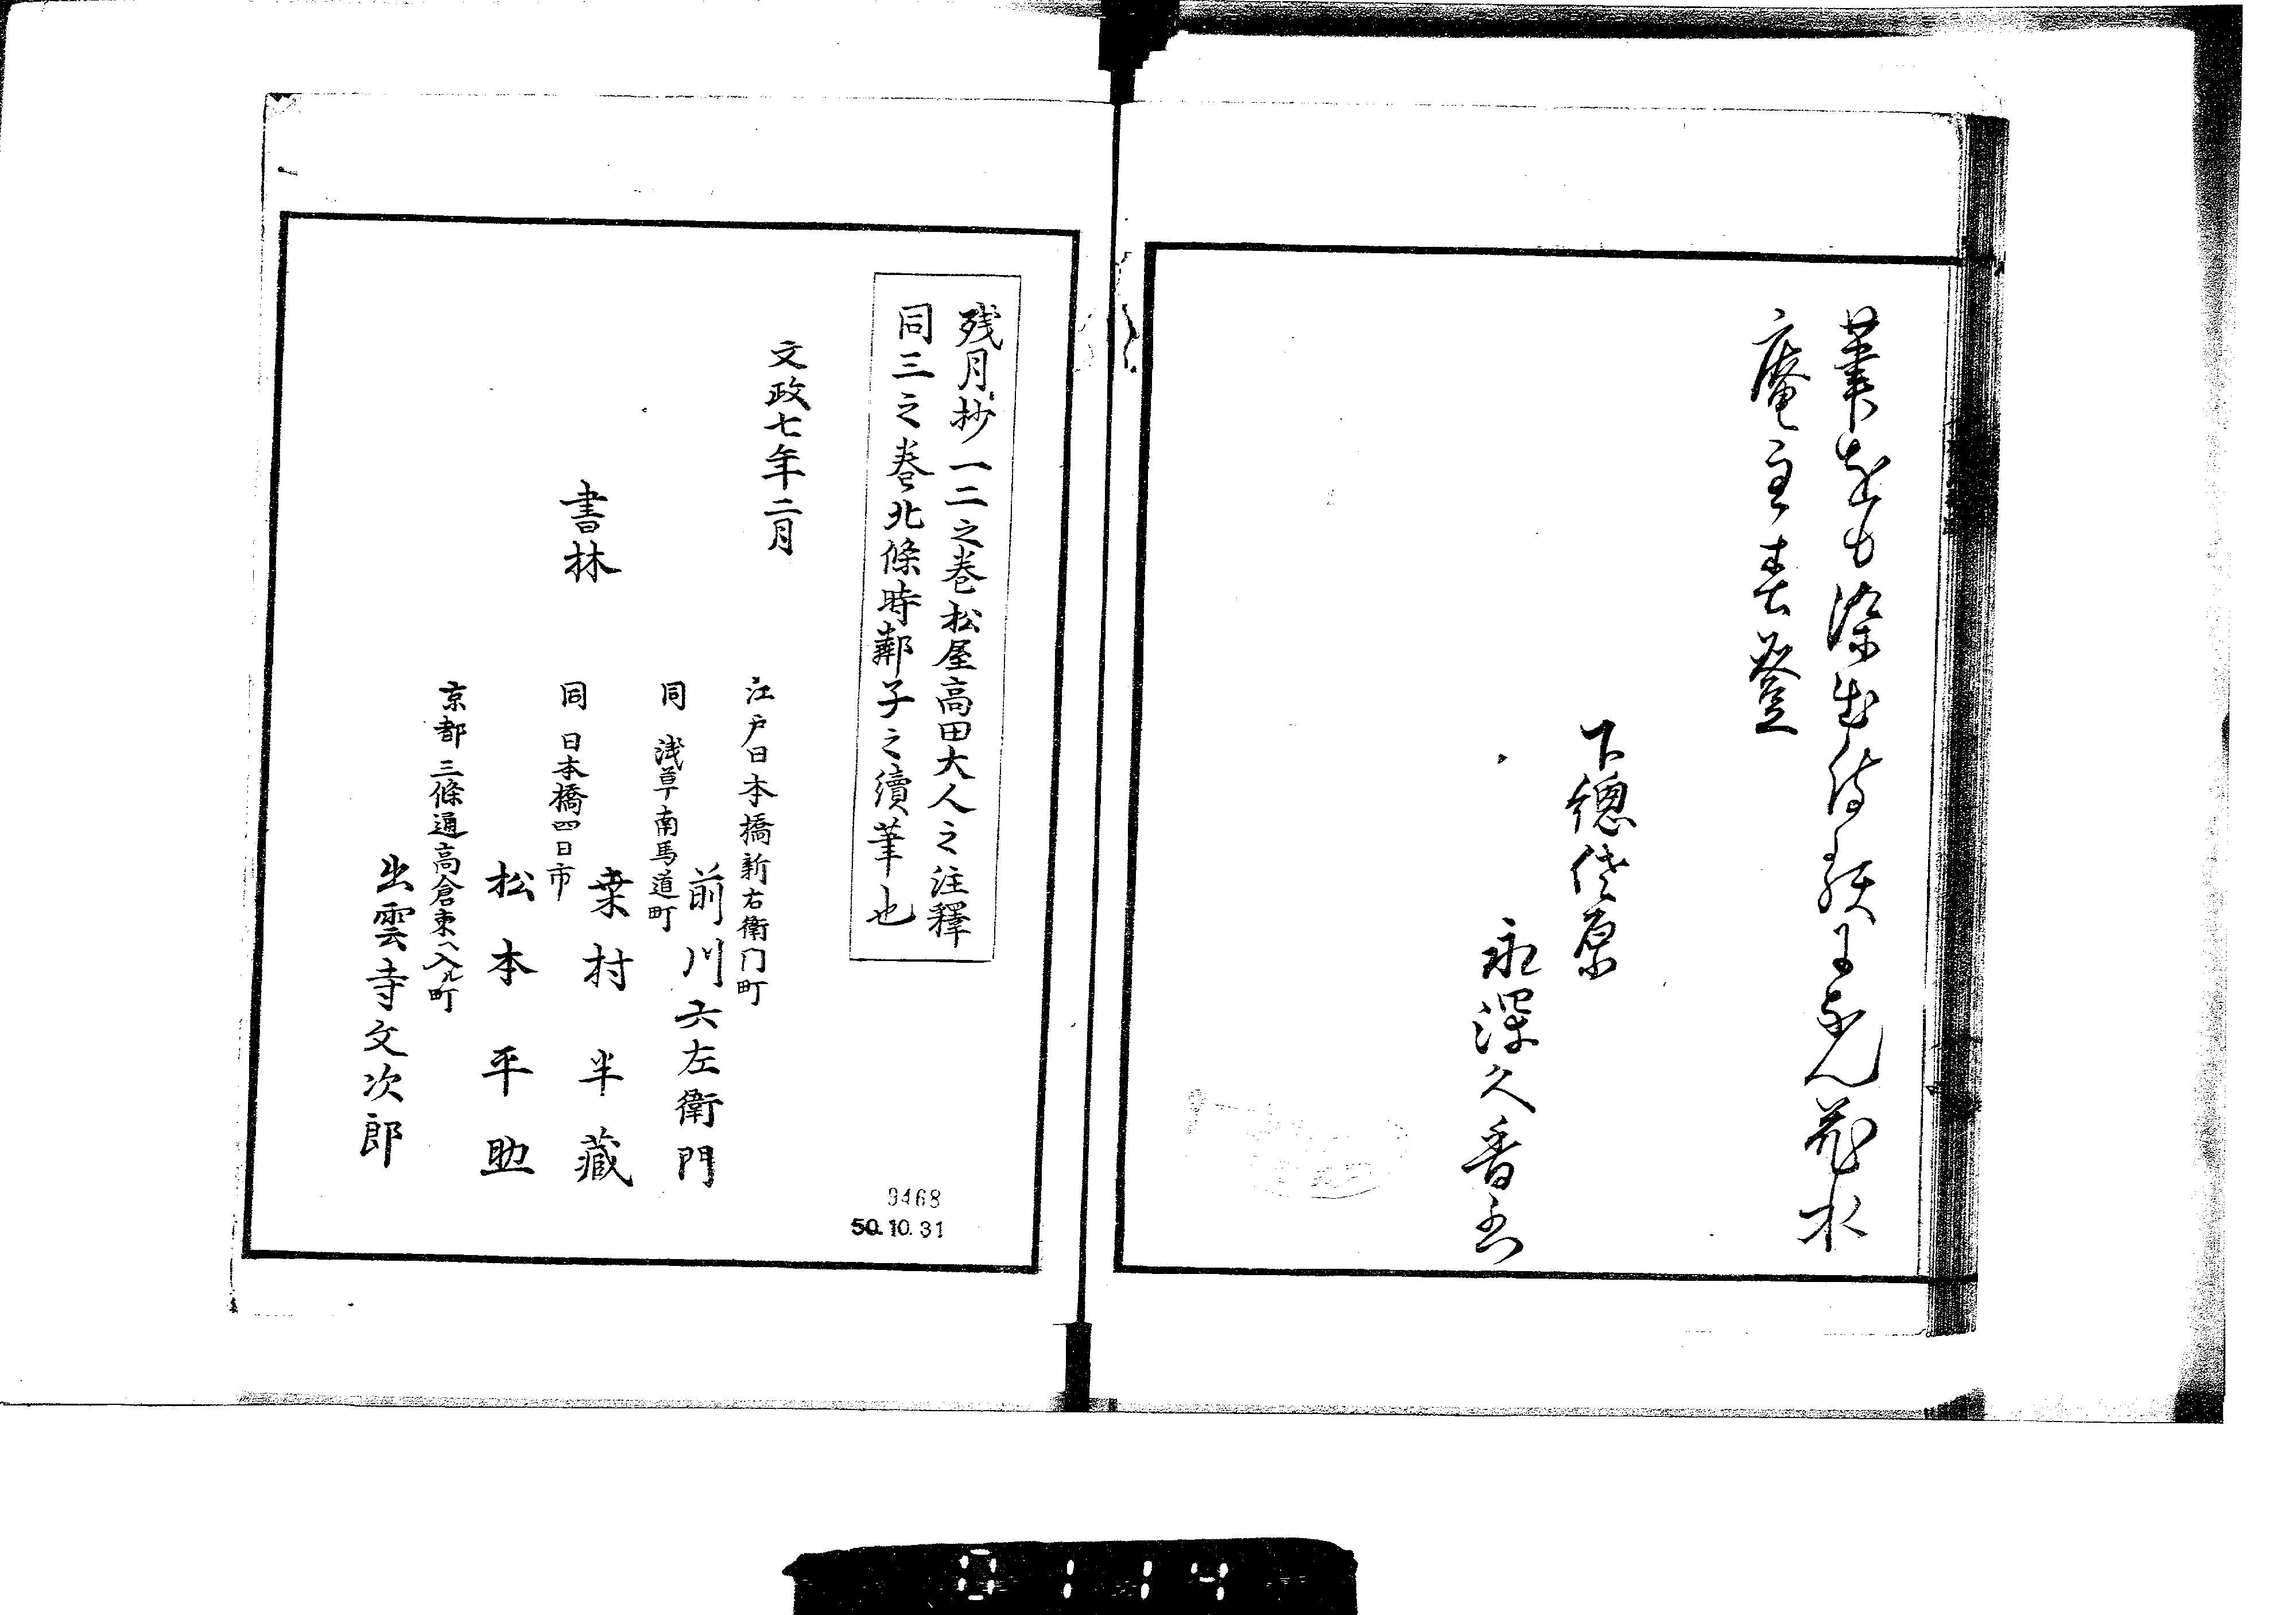 庵主春登
下總佐原
永澤久香書
残月抄一二之巻松屋高田大人之注釋
同三之巻北條時鄰子之續筆也
文政七年二月
書林
江戸日本橋新右衛门町
前川六左衛門
同 浅草南馬道町
桒村半藏
同 日本橋四日市
松本平助
京都三條通高倉東ヘ入ル町
出雲寺文次郎
9468
50.10.31
0114